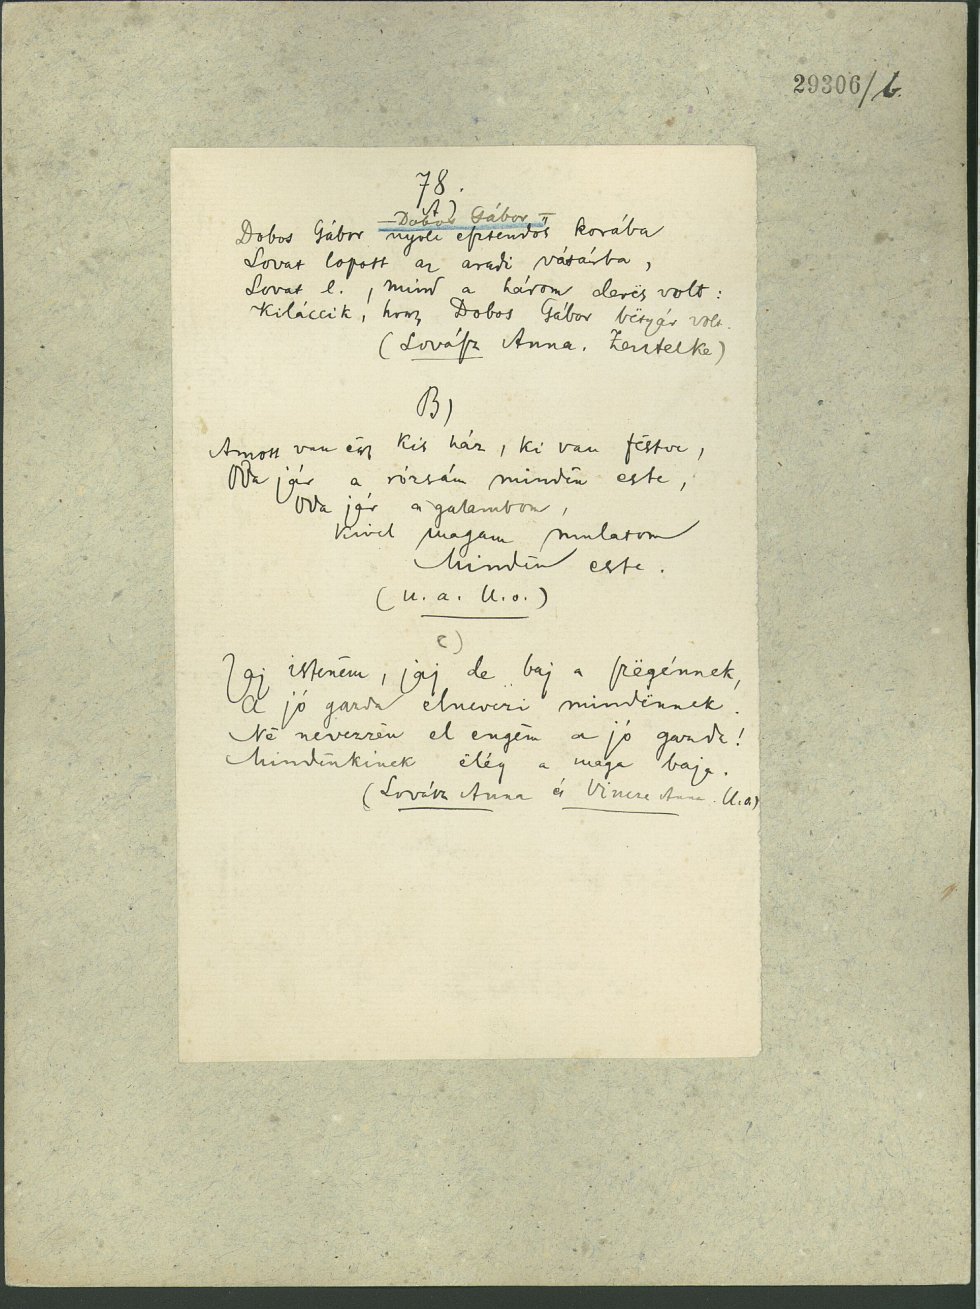 29306/b.
78.
A)
— Dobos Gábor —
Dobos Gábor nyolc esztendős korába
Lovat lopott az aradi vásárba,
Lovat l., mind a három derës volt:
Kiláccik, hogy Dobos Gábor bëtyár volt.
(Lovász Anna. Zentelke)
B)
Amott van ëgy kis ház, ki van fëstve,
Oda jár a rózsám mindën este,
Oda jár a galambom,
Kivel magam mulatom
Mindën este.
(U. a. U. o.)
C)
Jaj istenëm, jaj de baj a szëgénnek,
A jó gazda elnevezi mindënnek.
Në nevezzën el engëm a jó gazda!
Mindënkinek elég a maga baja.
(Lovász Anna és Vincze Anna. U. o.)